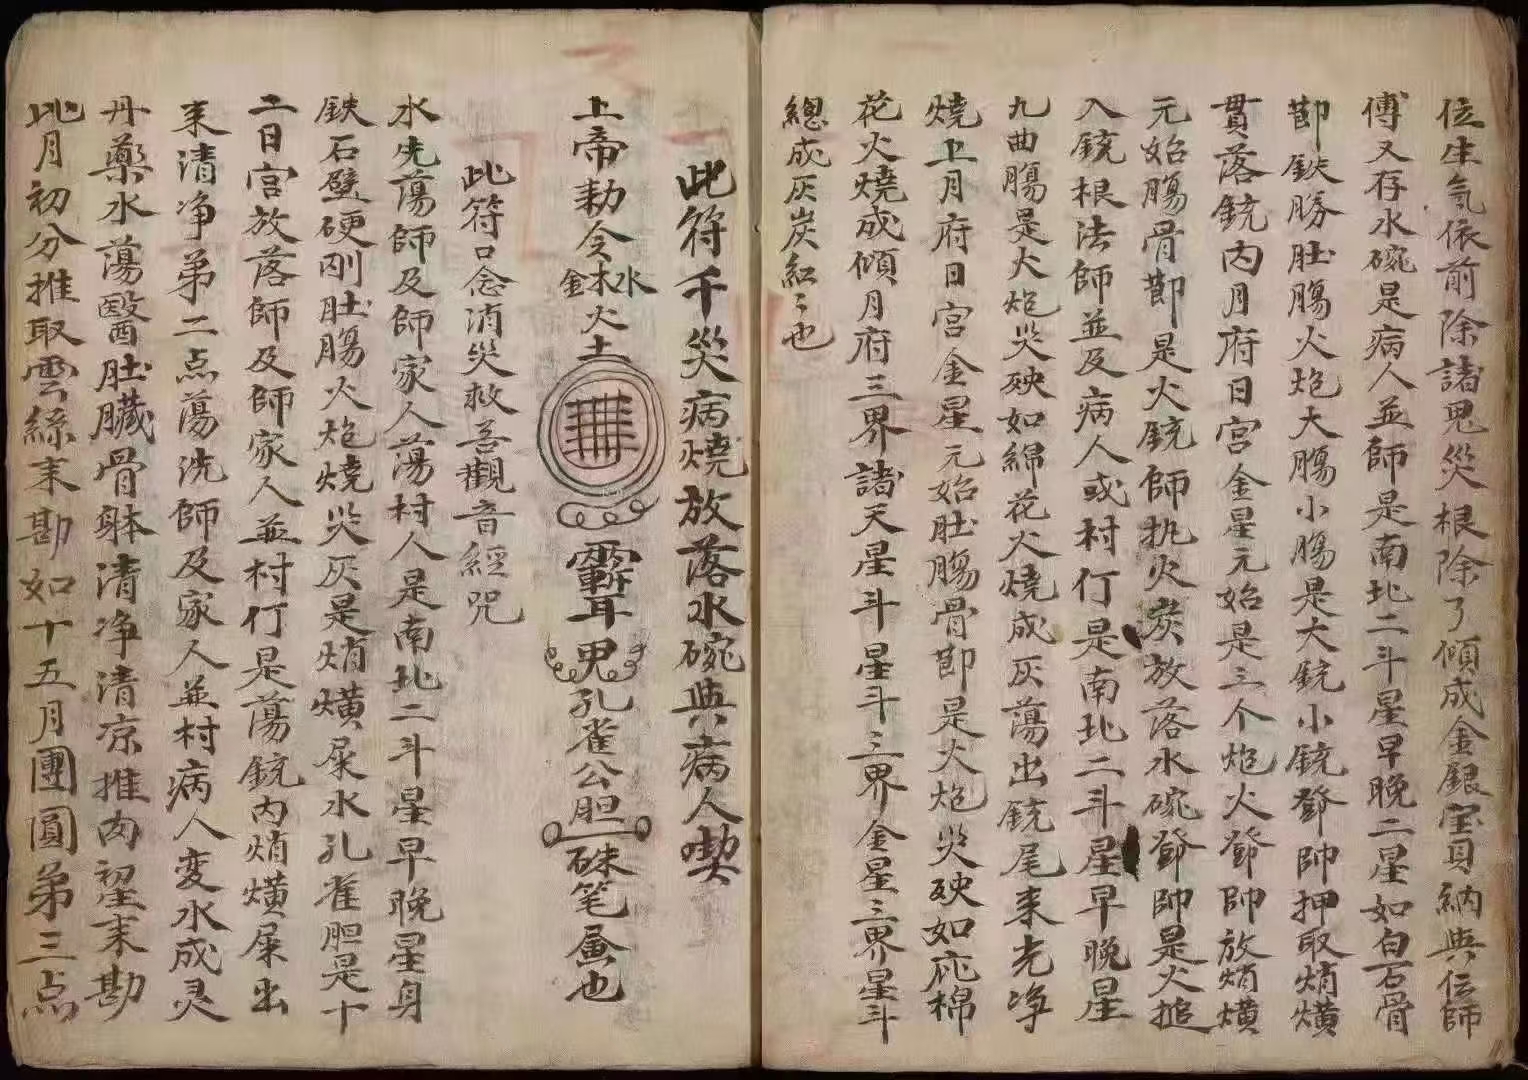 位生気依前除諸鬼災根除了傾成金銀宝貝納典位師
傅又存水碗是病人並師是南北二斗星早晚二星如白石骨
節鉄勝肚腸火炮大腸小腸是大銃小銃鄧帥押取焇熿
貫落銃内月府日宮金星元始是三个炮火鄧帥放焇熿
元始腸骨節是火銃師执火炭放落水碗鄧帥是火搥
入銃根法師並及病人或村仃是南北二斗星早晚星
九曲腸是火炮災殃如綿花火燒成灰蕩出銃尾来光净
燒上月府日宮金星元始肚腸骨節是火炮災殃如庀棉
花火燒成傾月府三界諸天星斗星斗三界金星三界星斗
總成灰炭紅〻也
此符千災病燒放落水碗典病人喫
上帝勅令金木水火土 耳男孔雀公胆硃笔屙也
此符口念消災救苦觀音經咒
水先蕩師及師家人蕩村人是南北二斗星早晚星身
鉄石壁硬刚肚腸火炮燒災灰是焇熿屎水孔雀胆是十
二日宮放落師及師家人並村仃是蕩銃内焇熿屎出
来清净弟二点蕩洗師及家人並村病人变水成灵
丹藥水蕩醫肚臟骨躰清净清凉推肉初望来勘
此月初分推取雲絲末勘如十五月團圓弟三点